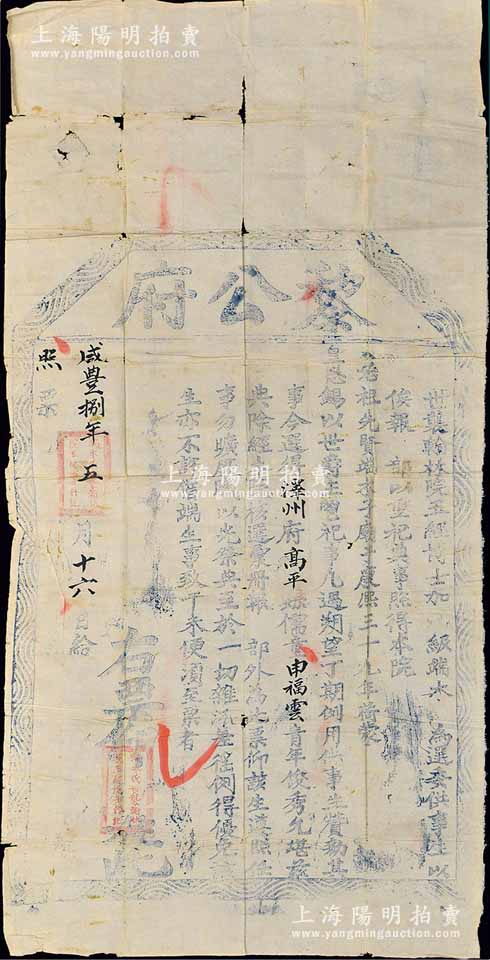 上海陽明拍賣
www.yangmingauction.com
黎公府
世襲翰林院五經博士加 級端木 為選委供事生以
俟報 部以重祀典事照得本院
始祖先賢端木子康熙三十九年荷蒙
恩錫以世爵主鬯祀事凡遇朔望丁期例用供事生贊勷其
事今選 澤州府高平 儒童申福雲青年俊秀允堪茲
典除經 選彙冊報 部外為此票仰該生遵照
事勿曠 以光祭典至於一切雜汎差徭例得優免
生亦不許 端生事致干未便須至票者
右票
咸豐捌年五月十六日給
照票
上海陽明拍賣
www.yangmingauction.com
上海陽明拍賣
www.yangmingauction.com